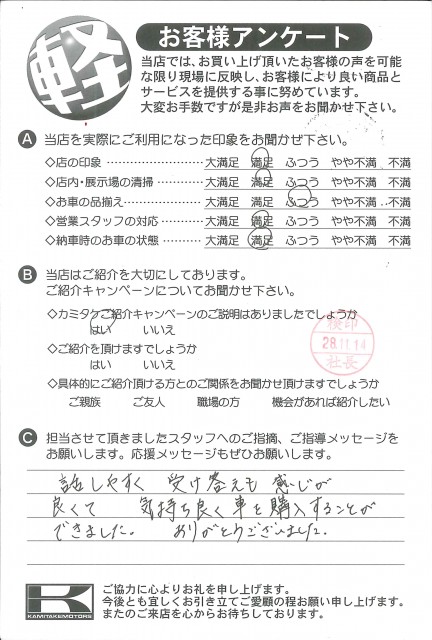 軽
お客様アンケート
当店では、お買い上げ頂いたお客様の声を可能
な限り現場に反映し、お客様により良い商品と
サービスを提供する事に努めています。
大変お手数ですが是非お声をお聞かせ下さい。
A 当店を実際にご利用になった印象をお聞かぜ下さい。
◇店の印象 ………………… 大満足 満足 ふつう やや不満 不満
◇店内・展示場の清掃………… 大満足 満足 ふつう やや不満 不満
◇お車の品揃え……………… 大満足 満足 ふつう やや不満 不満
◇営業スタッフの対応 ……… 大満足 満足 ふつう やや不満 不満
◇納車時のお車の状態 ……… 大満足 満足 ふつう やや不満 不満
B 当店はご紹介を大切にしております。
ご紹介キャンペーンについてお聞かせ下さい。
◇カミタケご紹介キャンペーンのご説明はありましたでしょうか
はい いいえ
◇ご紹介を頂けますでしょうか
はい いいえ
◇具体的にご紹介頂ける方とのご関係をお聞かせ頂けますでしょうか
ご親族 ご友人 職場の方 機会があれば紹介したい
検印
28.11.14
社長
C 担当させて頂きましたスタッフへのご指摘、ご指導メッセージを
お願いします。応援メッセージもぜひお願いします。
話しやすく 受け答えも 感じが
良くて 気持ち良く車を購入することが
できました。 ありがとうございました。
KAMITAKEMOTORS
ご協力に心よりお礼を申し上げます。
今後とも宜しくお引き立てご愛顧の程お願い申し上げます。
またのご来店を心からお待ちしております。